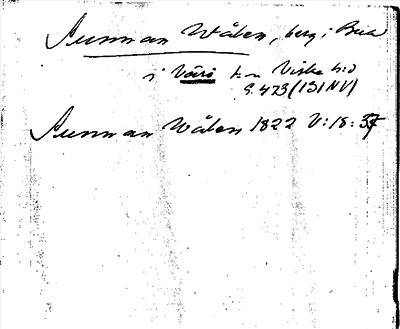 Sunnan Wålen, berg i Bua
i Värö sn Viske hd
S. 423 (131 NV)
Sunnan Wålen 1822 V:18:37